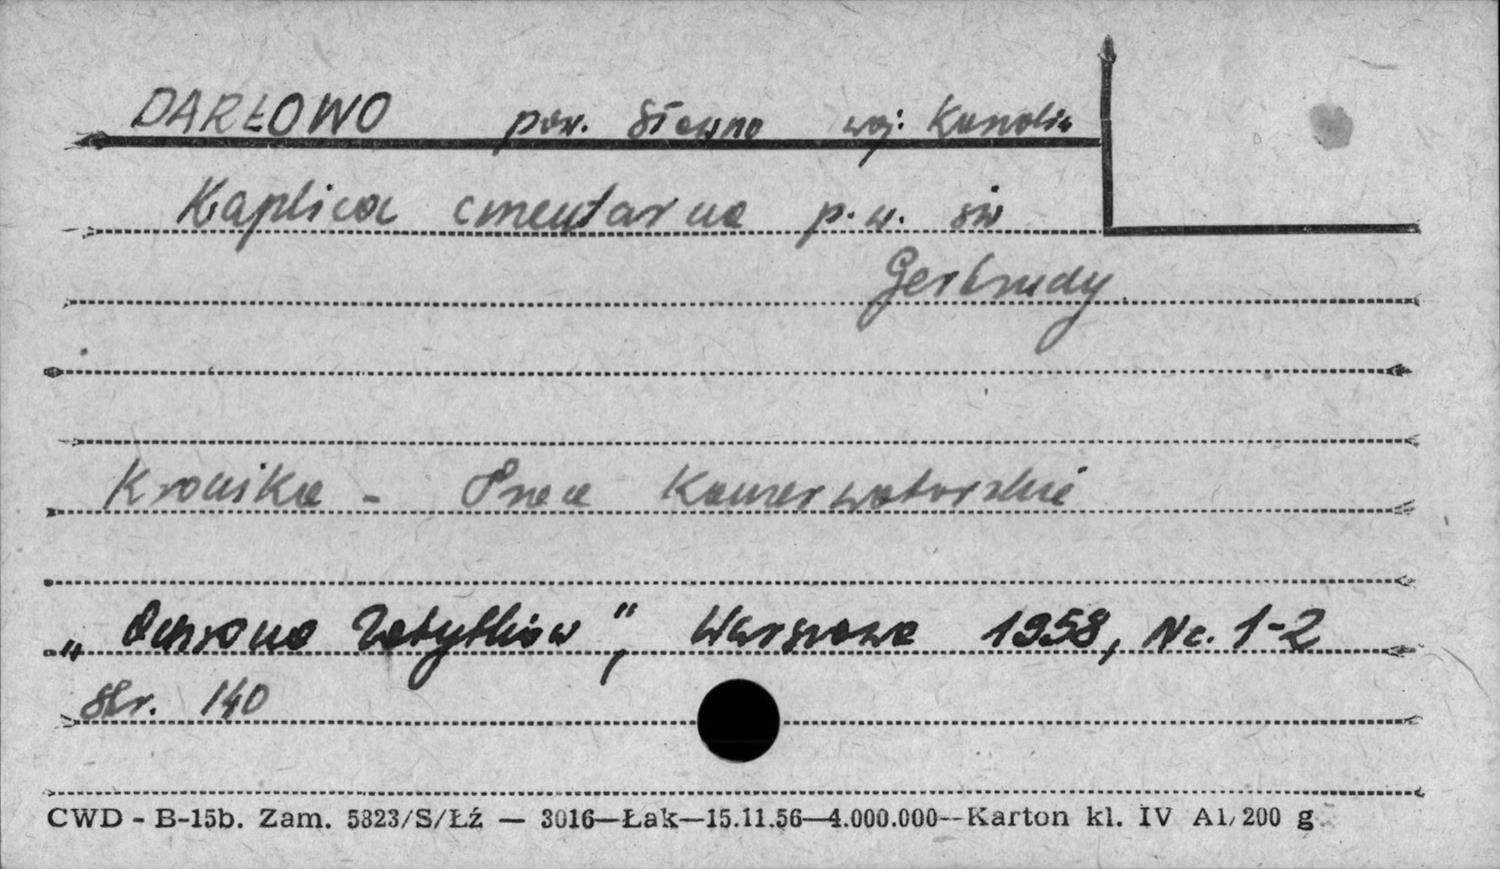 DARŁOWO pow. Sławno woj. Koszalin
Kaplica cmentarna p.w. św
Gertrudy
Kronika - Prace Konserwatorskie
„Ochrona Zabytków", Warszawa 1958, Nr. 1-2
Str. 140
CWD - B-15b. Zam. 5323/S/Łź — 3016—Łak—15.11.56—4.000.000—Karton kl. IV A1/200 g